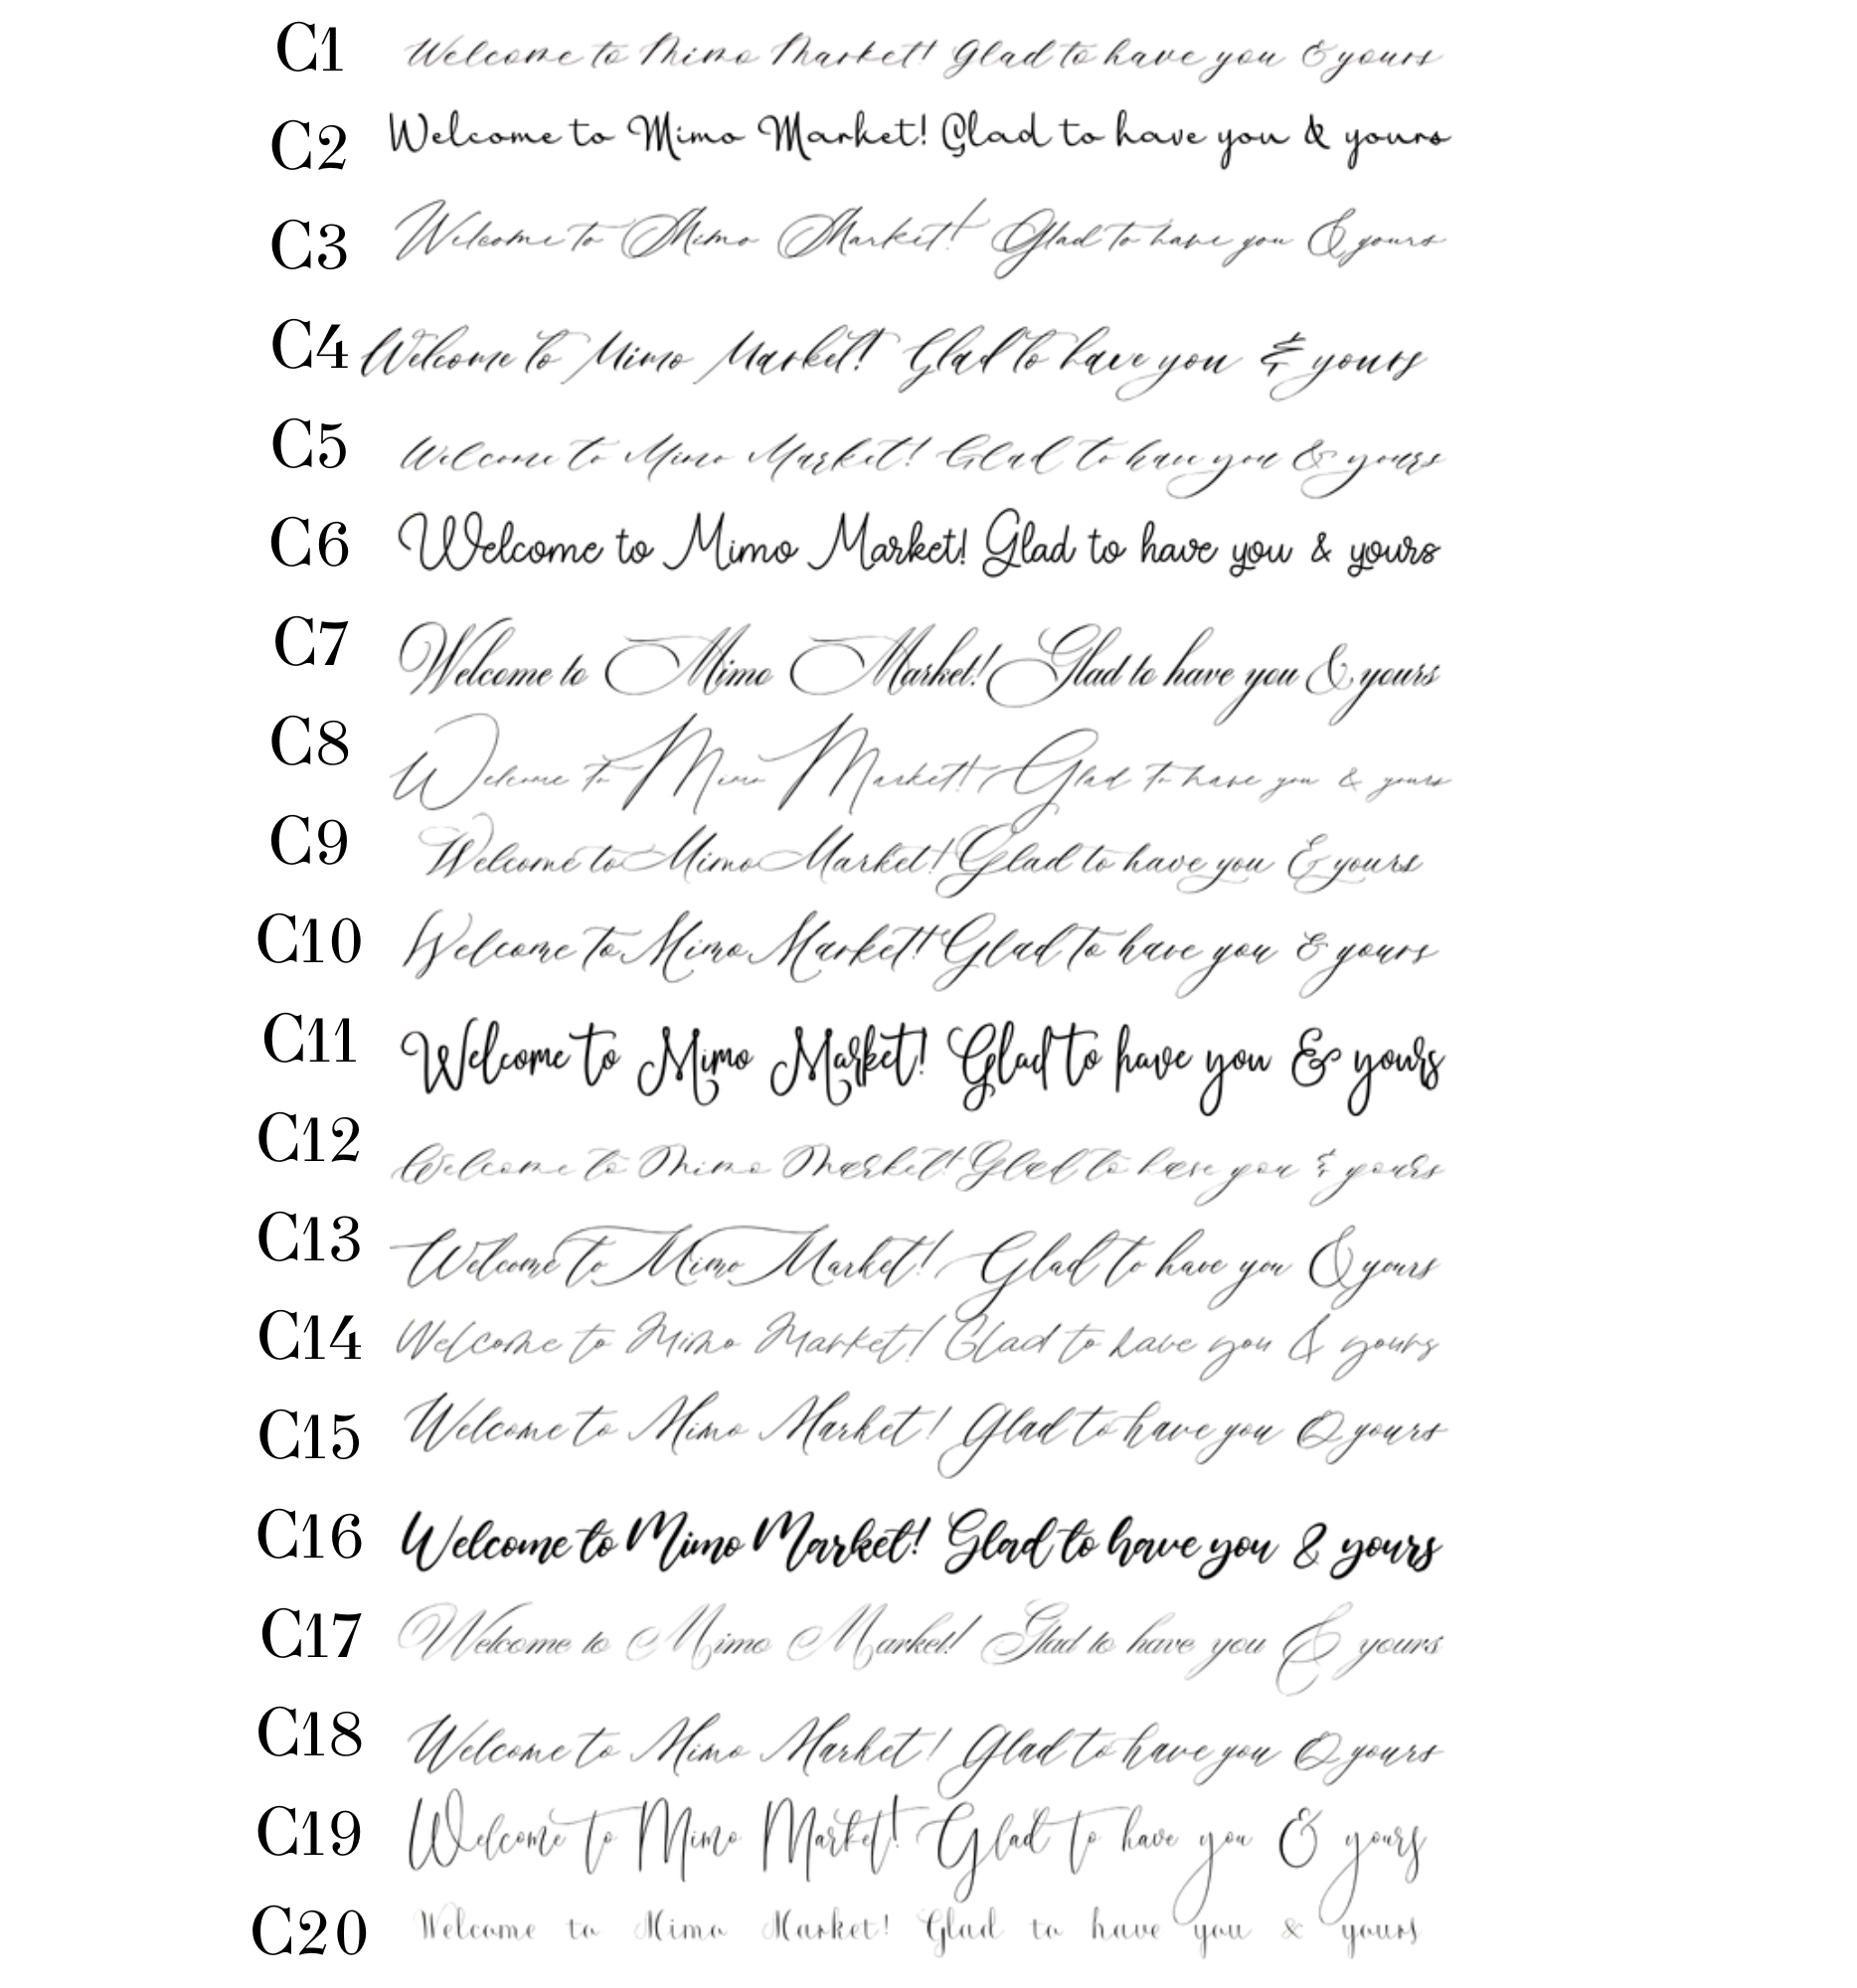 C1 Welcome to Mimo Market! Glad to have you & yours
C2 Welcome to Mimo Market! Glad to have you & yours
C3 Welcome to Mimo Market! Glad to have you & yours
C4 Welcome to Mimo Market! Glad to have you & yours
C5 Welcome to Mimo Market! Glad to have you & yours
C6 Welcome to Mimo Market! Glad to have you & yours
C7 Welcome to Mimo Market! Glad to have you & yours
C8 Welcome to Mimo Market! Glad to have you & yours
C9 Welcome to Mimo Market! Glad to have you & yours
C10 Welcome to Mimo Market! Glad to have you & yours
C11 Welcome to Mimo Market! Glad to have you & yours
C12 Welcome to Mimo Market! Glad to have you & yours
C13 Welcome to Mimo Market! Glad to have you & yours
C14 Welcome to Mimo Market! Glad to have you & yours
C15 Welcome to Mimo Market! Glad to have you & yours
C16 Welcome to Mimo Market! Glad to have you & yours
C17 Welcome to Mimo Market! Glad to have you & yours
C18 Welcome to Mimo Market! Glad to have you & yours
C19 Welcome to Mimo Market! Glad to have you & yours
C20 Welcome to Mimo Market! Glad to have you & yours